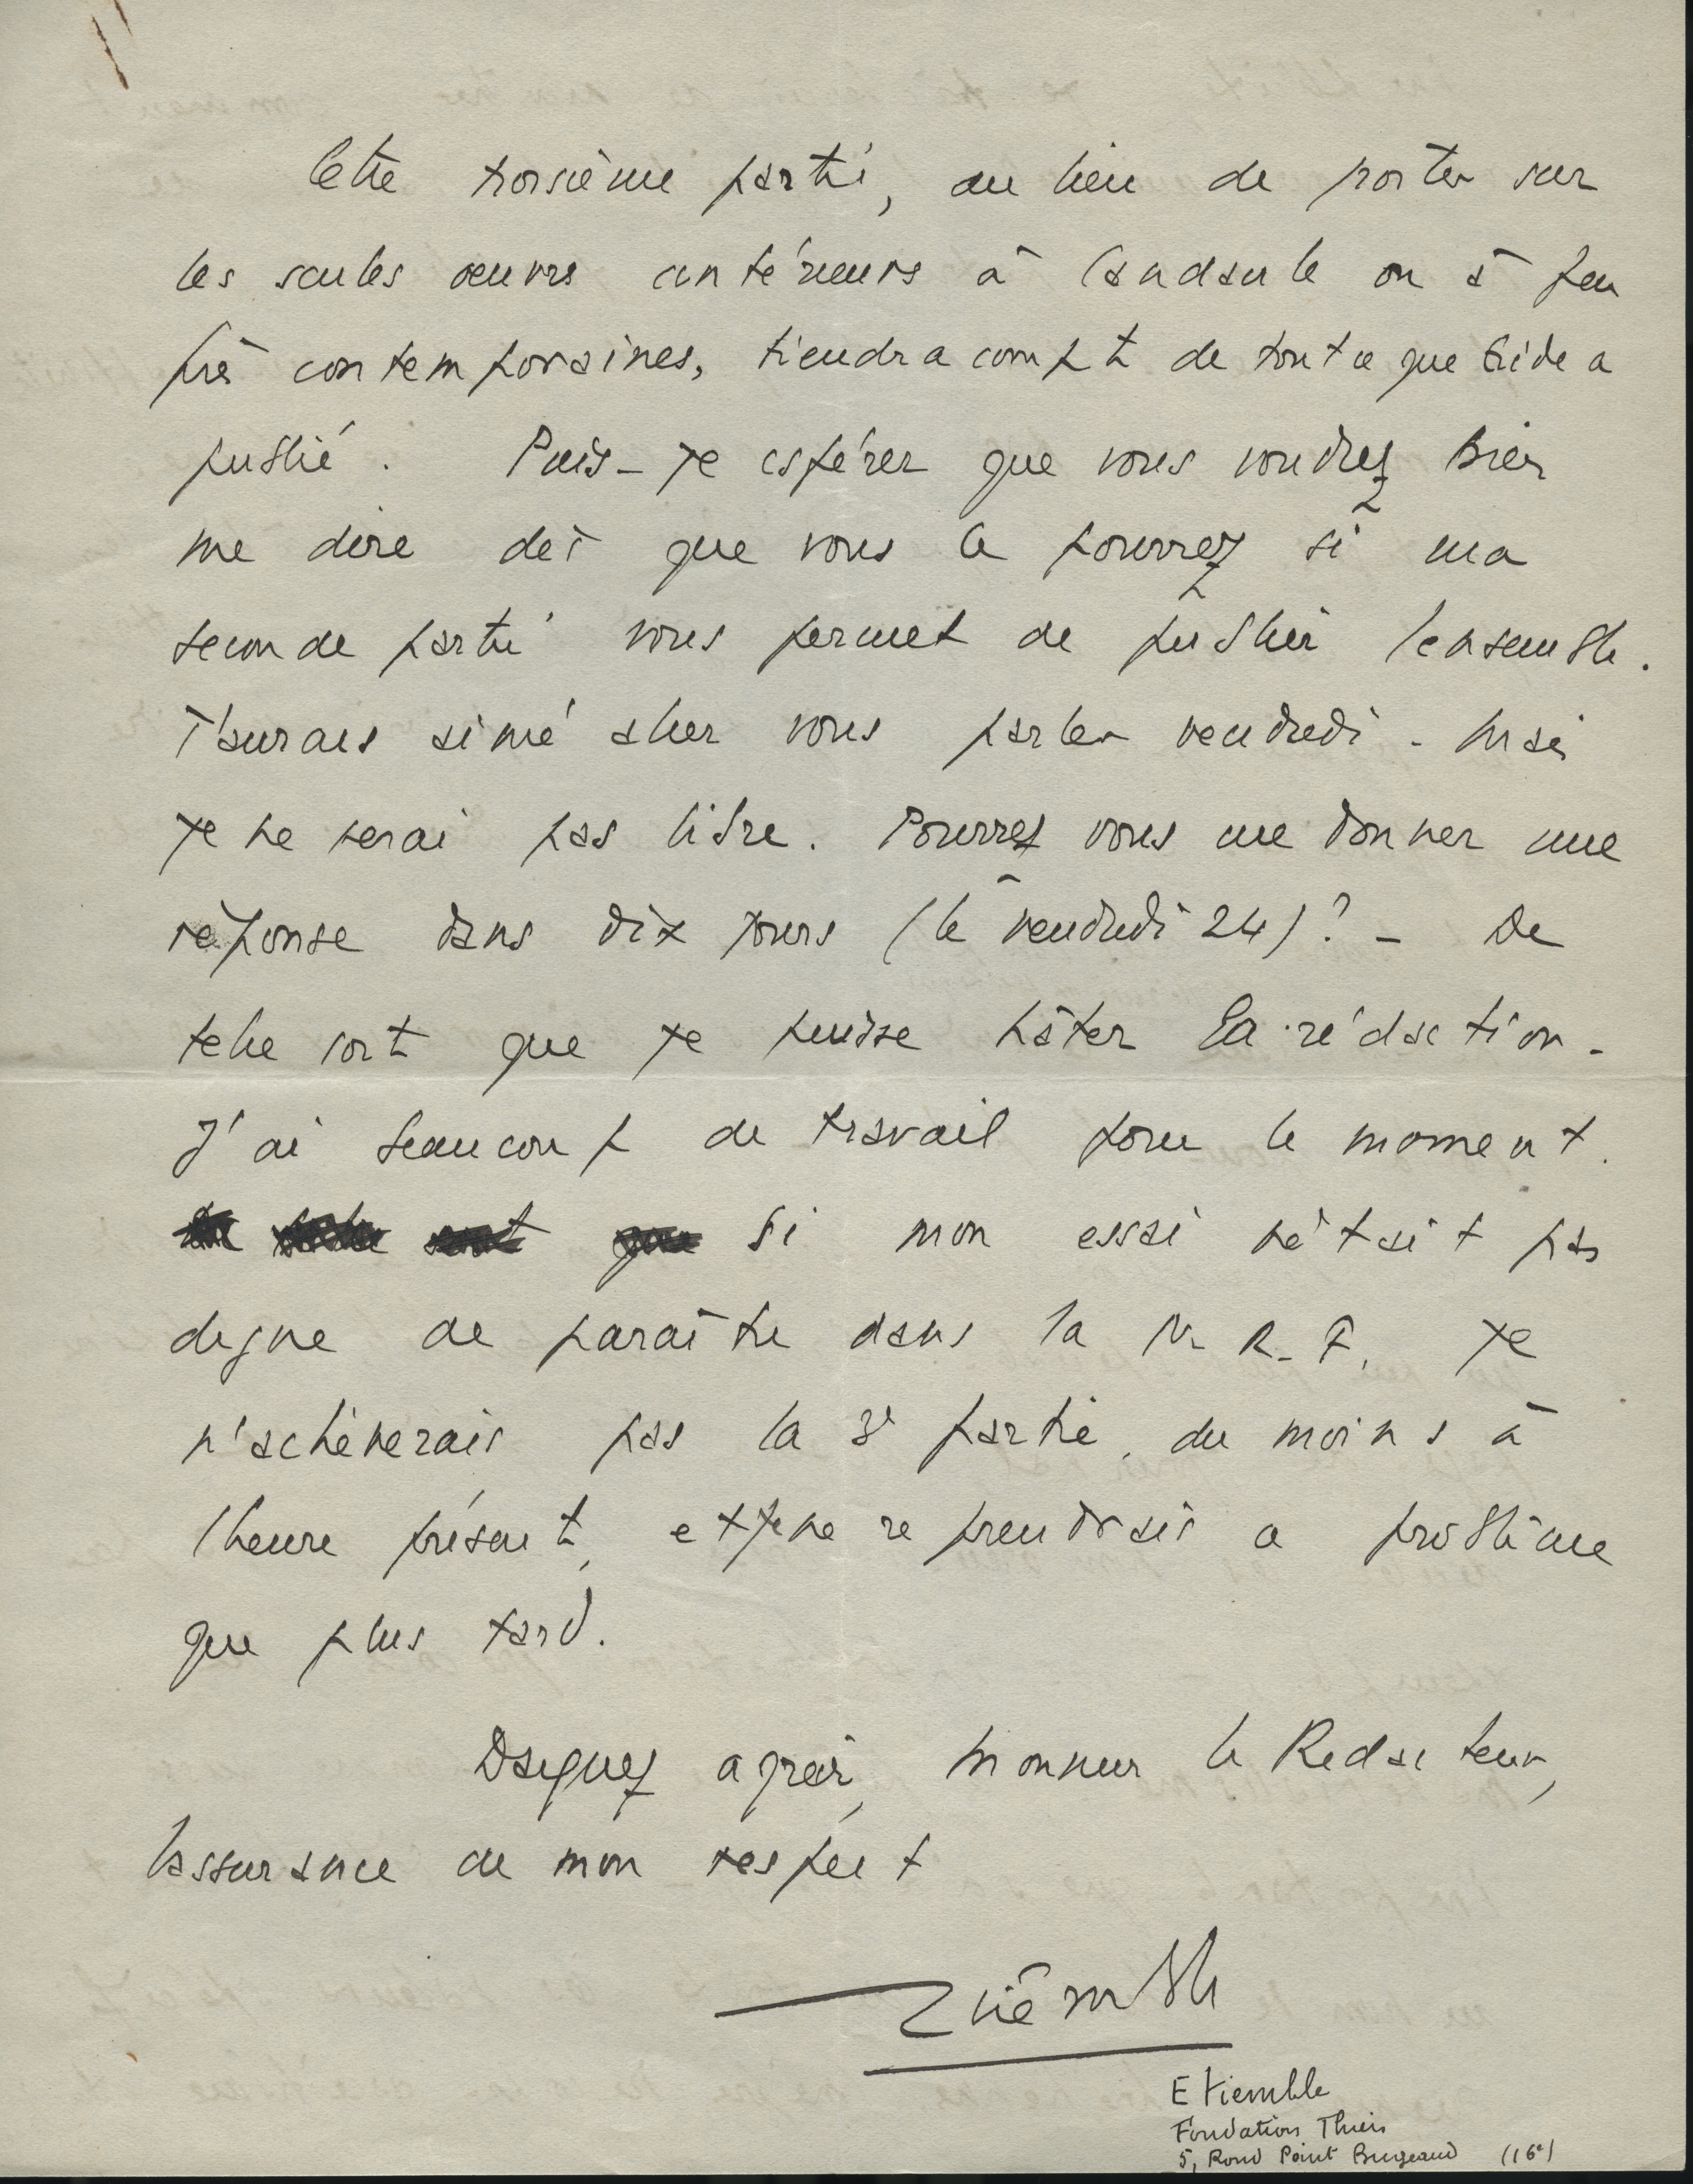 Cette troisième partie, au lieu de porter sur
les seules œuvres antérieures à Candaule ou à peu
près contemporaines, tiendra compte de tout ce que Gide a
publié. Puis-je espérer que vous voudrez bien
me dire dès que vous le pourrez si ma
seconde partie vous permet de publier l'ensemble.
J'aurais aimé aller vous parler vendredi - Mais
je ne serai pas libre. Pourrez vous me donner une
réponse dans dix jours (le vendredi 24)? - De
telle sorte que je puisse hâter la rédaction -
J'ai beaucoup de travail pour le moment.
De telle sorte que Si mon essai n'était pas
digne de paraître dans la N. R. F. je
n'achèverais pas la 3e partie, du moins à
l'heure présente, et je ne reprendrais ce problème
que plus tard.
Daignez agréer, Monsieur le Rédacteur,
l'assurance de mon respect
Etiemble
Etiemble
Fondation Thiers
5, Rond Point Bugeaud (16e)